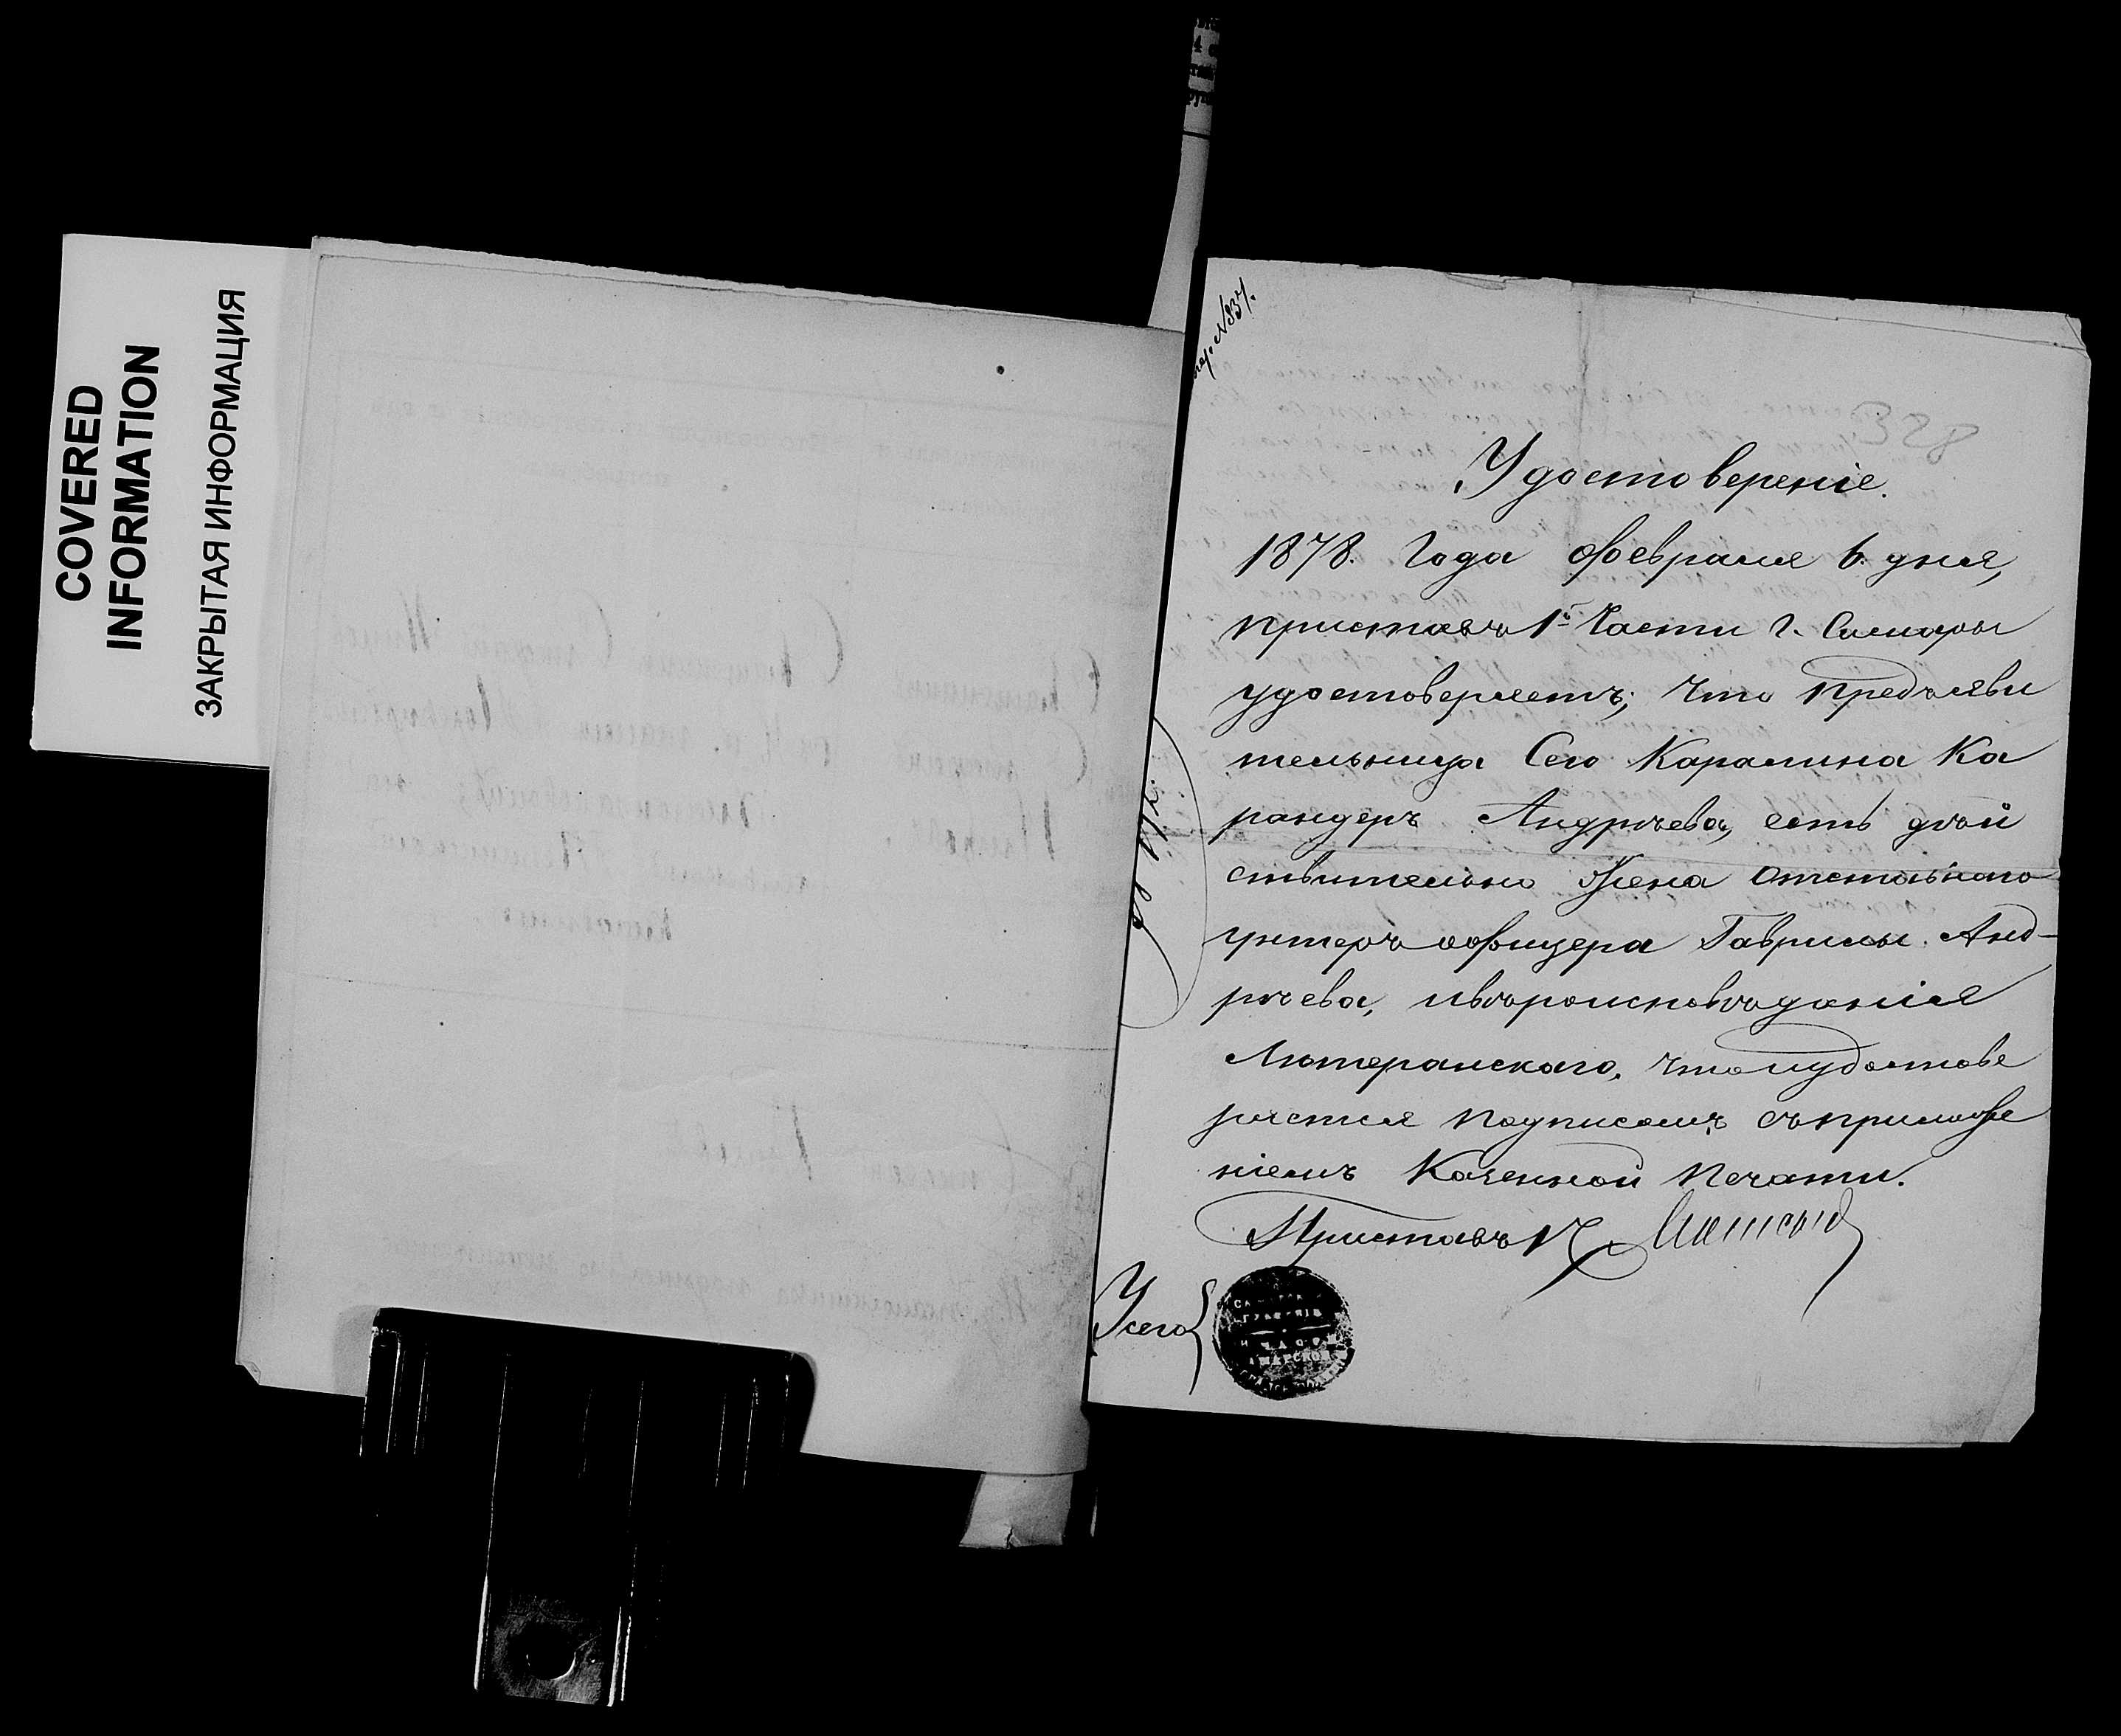 COVERED
INFORMATION
ЗАКРЫТАЯ ИНФОРМАЦИЯ
№ 837.
328
Удостоверенiе.
1878. Года февраля 6. дня,
приставъ 1й Части г. Самары
удостоверяетъ; что предъяви
тельница Сего Каралина Ка
рандеръ Андрѣева, есть дѣй
ствительно Жена Отставнаго
унтеръ офицера Гаврилы. Анд-
рѣева, ивѣроисповѣданiя
Лютеранскаго, что иудостове
ряется подписомъ съприложе
нiемъ Казенной Печати.
Приставъ